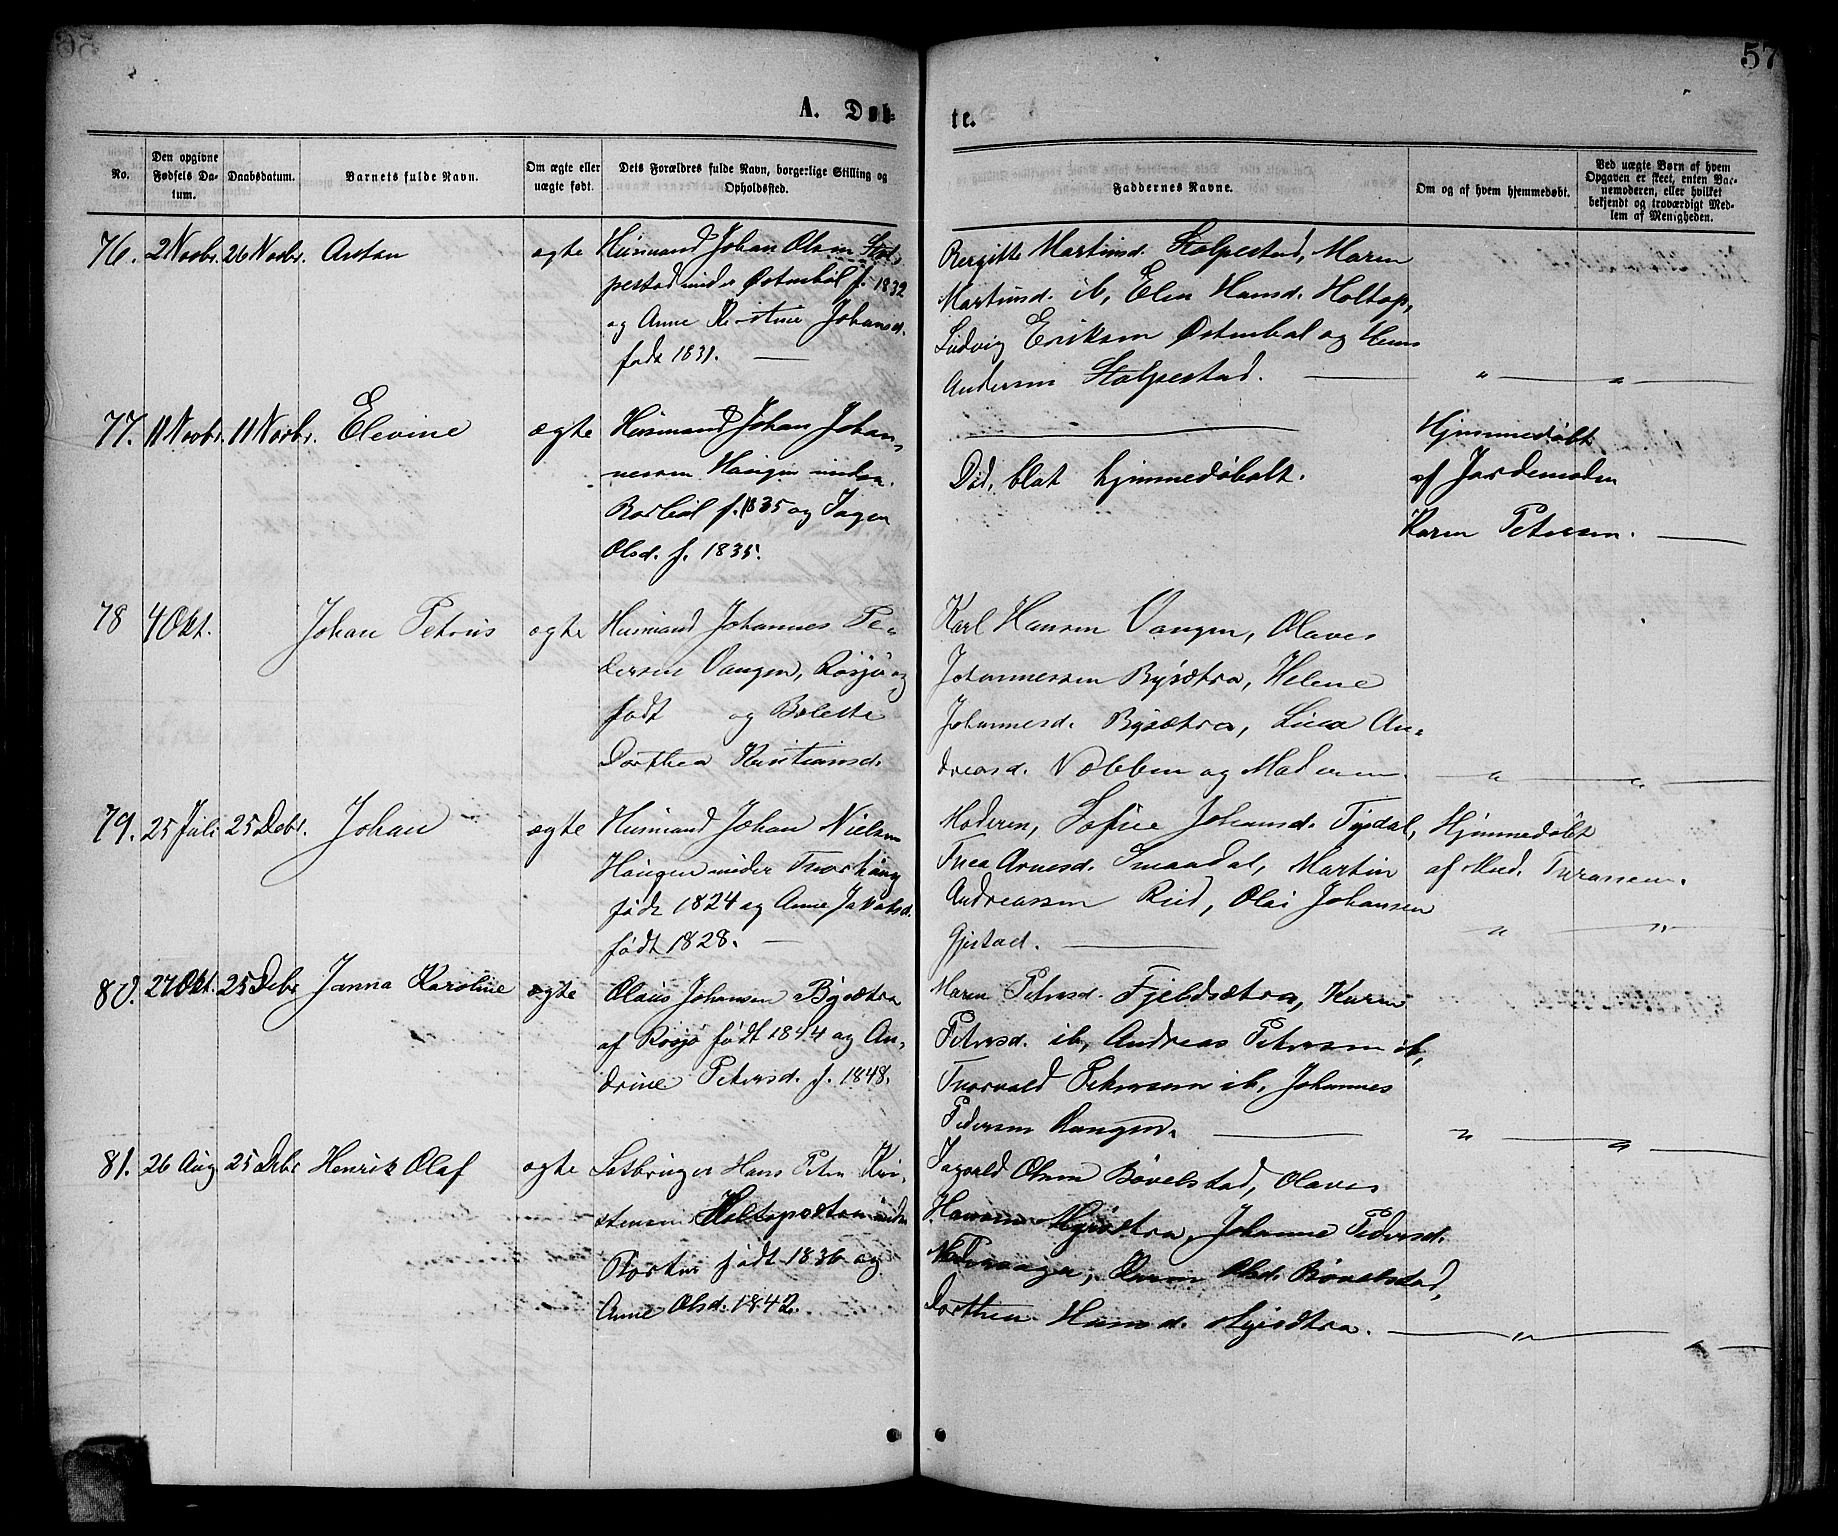 57
A. Døb-
te.
No.
Den opgivne Fødsels Datum.
Daabsdatum.
Barnets fulde Navn.
Om ægte eller uægte født.
Dets Forældres fulde Navn, borgerlige Stilling og Opholdssted.
Faddernes Navne.
Om og af hvem hjemmedøbt.
Ved uægte Børn af hvem Opgaven er skeet, enten Barnemoderen, eller hvilket bekjendt og troværdigt Medlem af Menigheden.
76. 2 Novbr. 26 Novbr. Anton ægte
Husmand Johan Olsen Stol-
pestad under Østenbøl f. 1832
og Anne Kristine Johansd.
født 1831.
Bergitte Martinsd. Stolpestad, Maren
Martinsd. ib, Elen Hansd. Holtop,
Ludvig Eriksen Østenbøl og Hans
Andersen Stolpestad. " "
77. 11 Novbr. 11 Novbr. Elevine ægte
Husmand Johan Johan-
nessen Haugen under
f. 1835 og Inger
Olsd. f. 1835.
Død, blot hjemmedøbt.
Hjemmedøbt
af Jordemoder
Karen Petersen.
78 4 Okt. Johan Petrus ægte
Husmand Johannes Pe-
dersen Vangen, Rosjø og
født og Bolette
Dorthea Kristiansd.
Karl Hansen Vangen, Olaves
Johannessen Bysætra, Helene
Johannesd. Bysætra, Lina An-
dreasd. Næbben og Moderen. " "
79. 25 Juli 25 Debr. Johan ægte
Husmand Johan Nielsen
Haugen under Thorhaug
født 1824 og Anne Jakobsd.
født 1828.
Moderen, Sofie Johansd. Tysdal,
Thea Arnesd. Smaadal, Martin
Andreassen Rud, Olai Johansen
Gjestad.
Hjemmedøbt
af Mad. Turassen.
" "
80. 27 Okt. 25 Debr. Janna Karoline ægte
Olaus Johansen Bysætra
af Rosjø født 1844 og An-
drine Petersd. f. 1848.
Maren Petersd. Fjeldsætra, Karen
Petersd. ib, Andreas Petersen ib,
Thorvald Petersen ib, Johannes
Pedersen Vangen. " "
81. 26 Aug 25 Debr Henrik Olaf ægte
Selbruger Hans Peter Kri-
stensen Holtopsætra under
født 1836 og
Anne Olsd. 1842.
Ingvald Olsen Bøvelstad, Olaves
Hansen Nysætra, Johanne Pedersd.
Karen Olsd. Bøvelstad,
Dorthea Hansd. Nysætra. " "